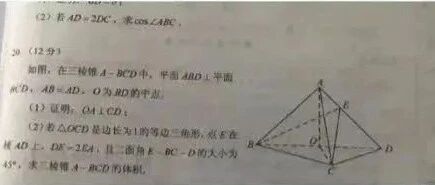 (2) 若 AD=2DC, 求 cos∠ABC.
20. (12分)
如图, 在三棱锥 A-BCD 中, 平面 ABD⊥平面
BCD, AB=AD, O 为 BD 的中点.
(1) 证明: OA⊥CD;
(2) 若△OCD 是边长为1的等边三角形, 点 E 在
棱 AD 上, DE=2EA, 且二面角 E-BC-D 的大小为
45°, 求三棱锥 A-BCD 的体积.
A
E
B
O
D
C